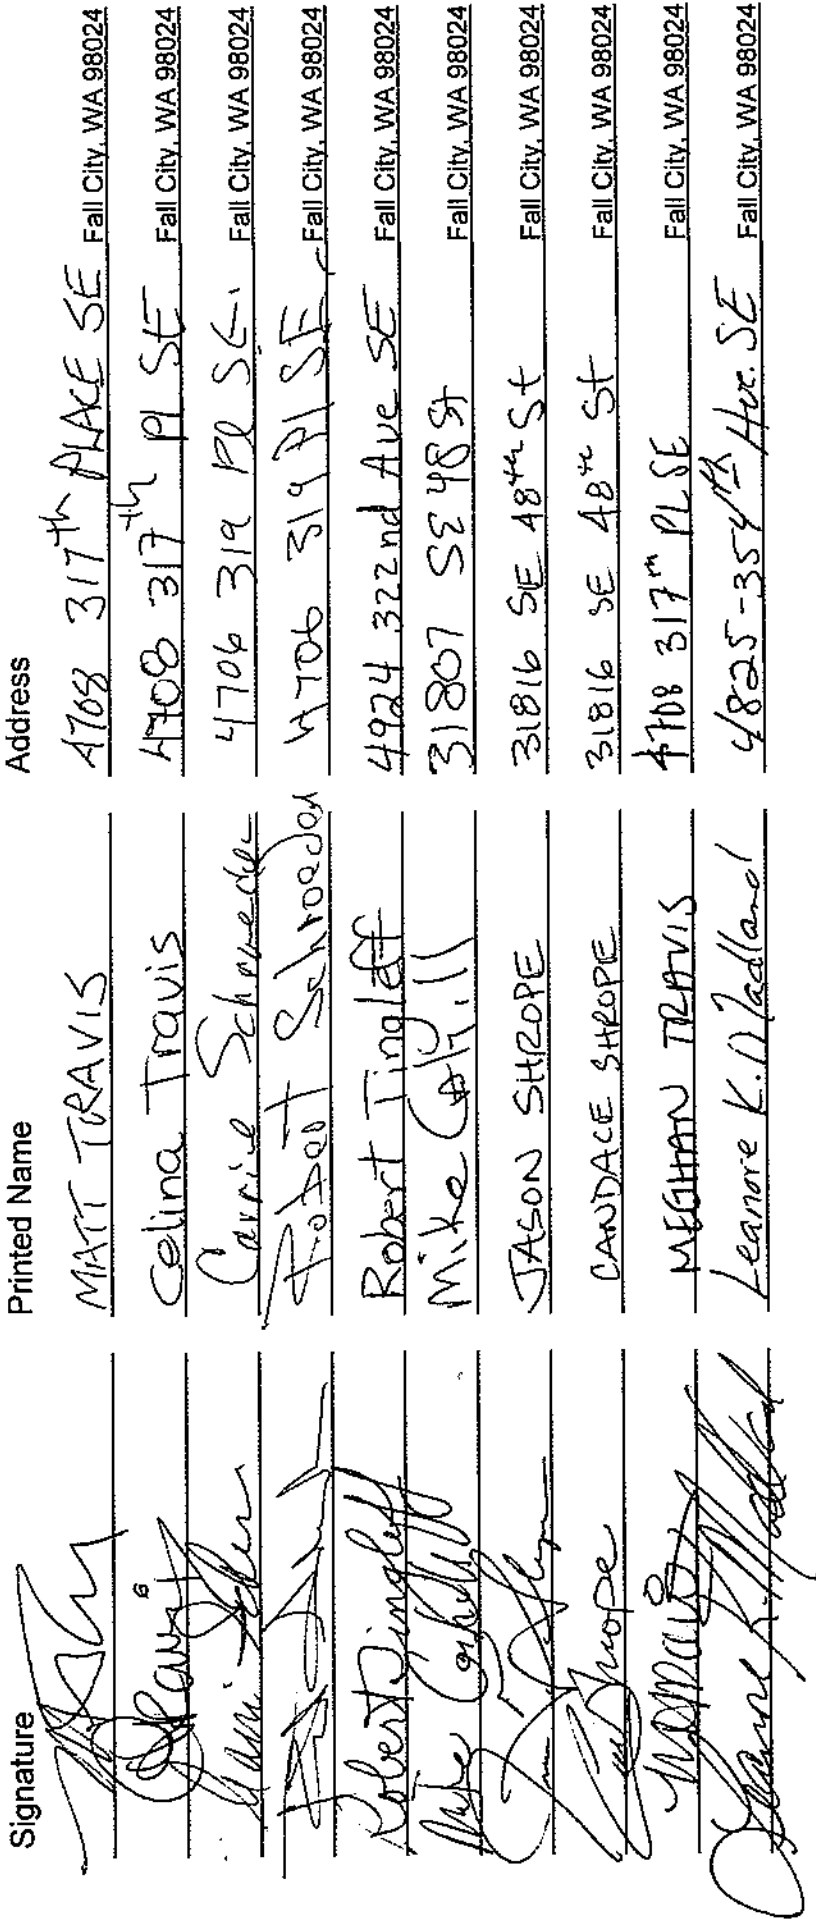 Signature Printed Name Address
MATT TRAVIS 4708 317th PLACE SE Fall City, WA 98024
Celina Travis 4708 317th Pl SE Fall City, WA 98024
Carrie Schroeder 4706 319 Pl SE. Fall City, WA 98024
Robert Schroeder 4706 319 Pl SE Fall City, WA 98024
Robert Tingleff Robert Tingleff 4924 322nd Ave SE Fall City, WA 98024
Mike Cahill Mike Cahill 31807 SE 48 St Fall City, WA 98024
JASON SHROPE 31816 SE 48th St Fall City, WA 98024
Shrope CANDACE SHROPE 31816 SE 48th St Fall City, WA 98024
MEGHAN TRAVIS 4708 317th PL SE Fall City, WA 98024
Leanore K. 4825-354th Ave. SE Fall City, WA 98024